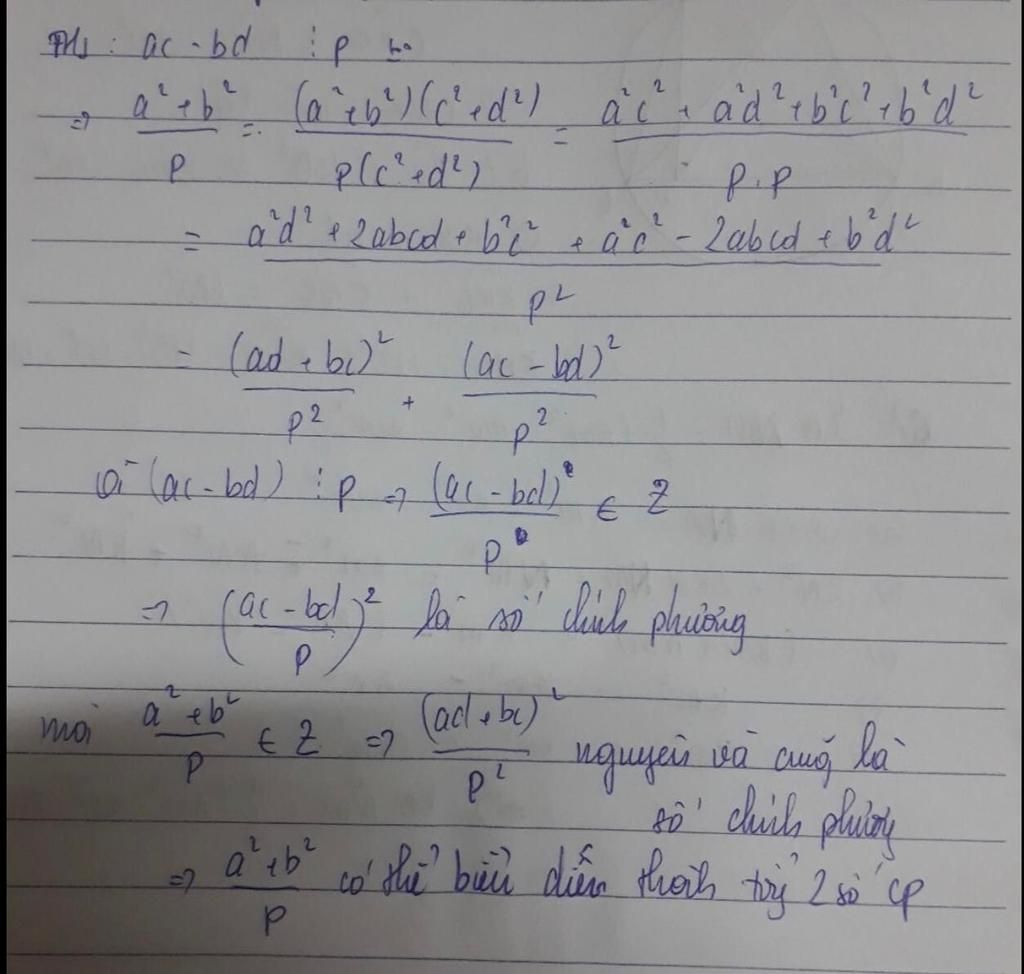 TH1: ac - bd ⋮ p
⇒ (a² + b²)/p = ((a² + b²)(c² + d²))/(p(c² + d²)) = (a²c² + a²d² + b²c² + b²d²)/(p.p)
= (a²d² + 2abcd + b²c² + a²c² - 2abcd + b²d²)/p²
= (ad + bc)²/p² + (ac - bd)²/p²
Vì (ac - bd) ⋮ p ⇒ (ac - bd)/p ∈ Z
⇒ ((ac - bd)/p)² là số chính phương
mà (a² + b²)/p ∈ Z ⇒ (ad + bc)²/p² nguyên và cũng là
số chính phương
⇒ (a² + b²)/p có thể biểu diễn thành tổng 2 số cp